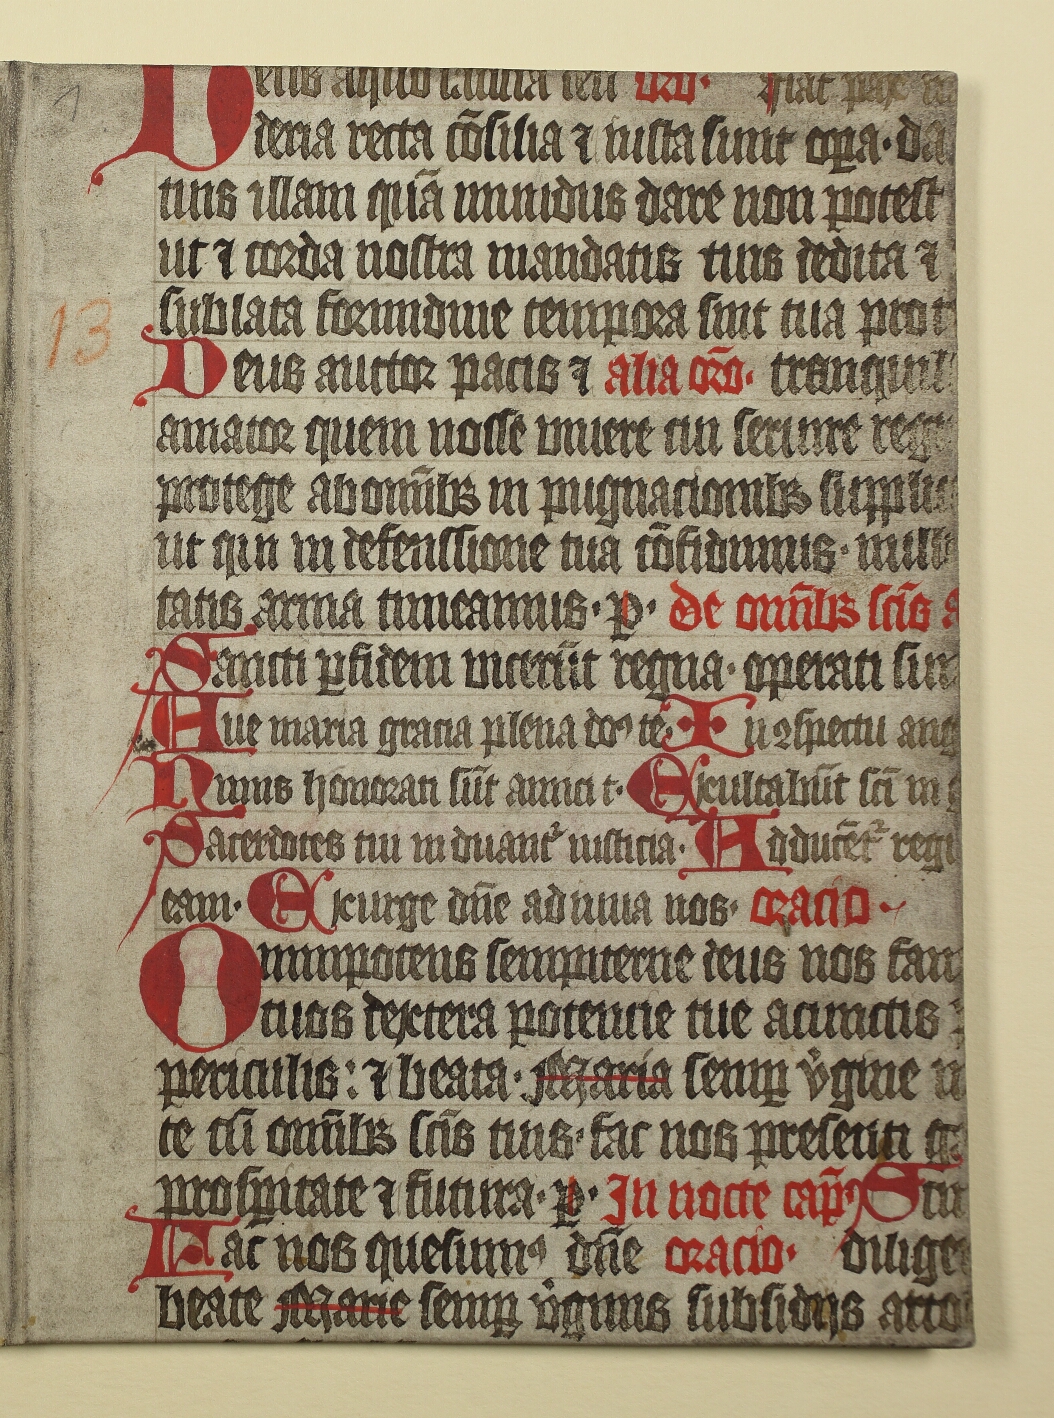 1
Deus a quo sancta sen oro. Fiat pax
deria recta cōsilia ⁊ iusta sunt oꝑa. da
tuis illam quā mundus dare non potest
ut ⁊ corda nostra mandatis tuis dedita ⁊
sublata formidine tempora sint tua prot
13
Deus auctor pacis ⁊ alia orō. tranquil
amator quem nosse viuere cui seruire reg
protege ab om̄ibꝫ in pugnacionibꝫ suppli
ut qui in defenssione tua cōfidimus. null
tatis arma timeamus. p. De om̄ibꝫ sc̄is
Sancti ꝑ fidem vicerūt regna. operati sun
Aue maria gracia plena dn̄s te. In ꝯspectu ang
Nimis honorati sūt amici t. Exultabūt sc̄i in
Sacerdotes tui induant᷑ iusticia. Adducēt᷑ regi
eam. Exurge dn̄e adiuua nos. oracio.
Omnipotens sempiterne deus nos fam
tuos dextera potencie tue a cunctis
periculis: ⁊ beata. Maria semꝑ v̓gine
te cū om̄ibꝫ sc̄is tuis. fac nos presenti
prosꝑitate ⁊ futura. p. In nocte cap̄. Stu
Fac nos quesumꝰ dn̄e oracio. dilige
beate Marie semꝑ v̓ginis subsidijs atto